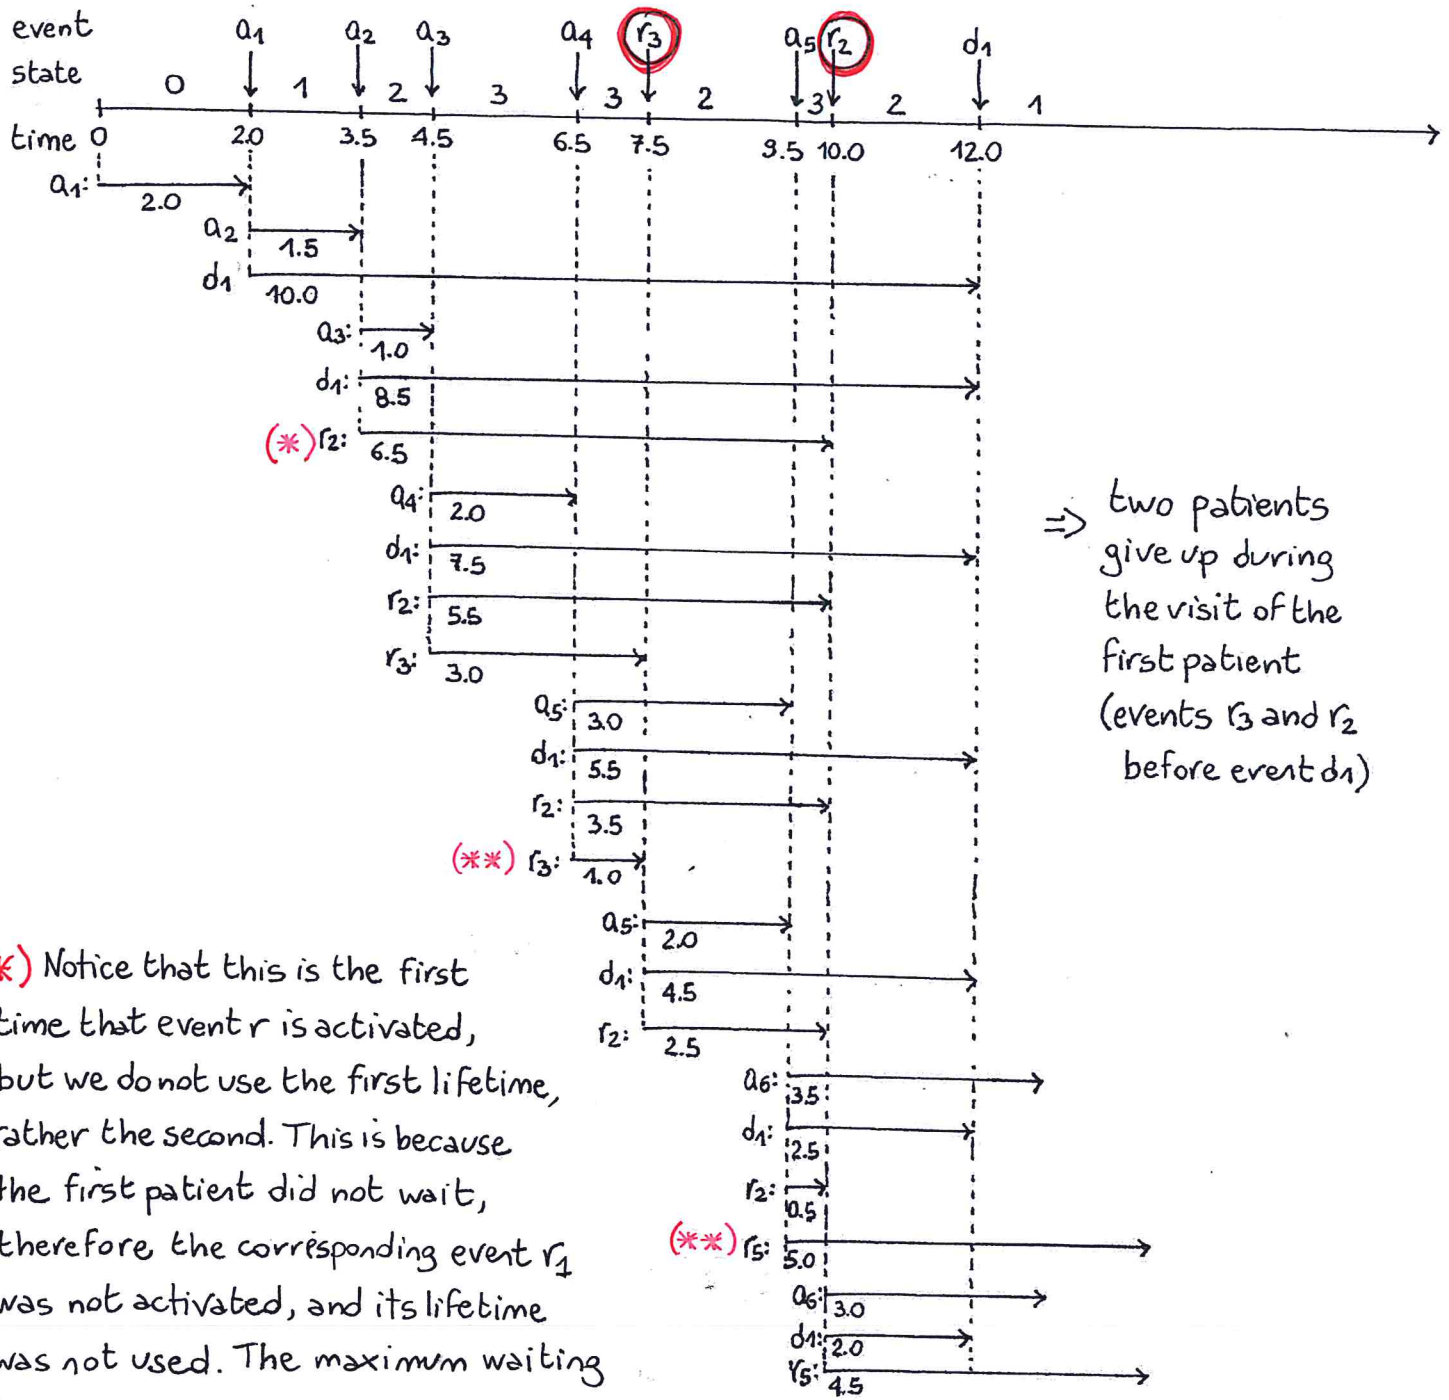 event a1 a2 a3 a4 r3 a5 r2 d1
state 0 1 2 3 3 2 3 2 1
time 0 2.0 3.5 4.5 6.5 7.5 9.5 10.0 12.0
a1: 2.0
a2 1.5
d1 10.0
a3: 1.0
d1: 8.5
(*) r2: 6.5
a4: 2.0
d1: 7.5
r2: 5.5
r3: 3.0
a5: 3.0
d1: 5.5
r2: 3.5
(**) r3: 1.0
a5: 2.0
d1: 4.5
r2: 2.5
a6: 3.5
d1: 2.5
r2: 0.5
(**) r5: 5.0
a6: 3.0
d1: 2.0
r5: 4.5
⇒ two patients
give up during
the visit of the
first patient
(events r3 and r2
before event d1)
*) Notice that this is the first
time that event r is activated,
but we do not use the first lifetime,
rather the second. This is because
the first patient did not wait,
therefore the corresponding event r1
was not activated, and its lifetime
was not used. The maximum waiting